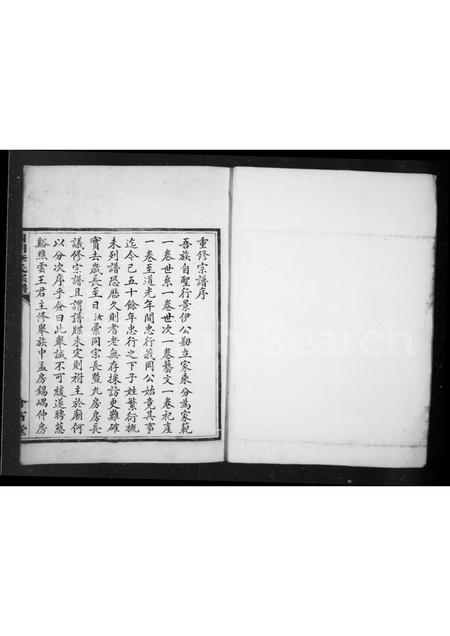 重修宗譜序
吾族自聖行景伊公剏立家乘分為家範
一卷世系一卷世次一卷藝文一卷祀產
一卷至道光年間忠行義岡公始竟其事
迄今已五十餘年忠行之下子姓繁衍概
未列譜恐歷久則耆老無存採訪更難確
實去歲長至日汝霖同宗長暨九房房長
議修宗譜且謂譜牒未定則祔主於廟何
以分次序乎僉曰此舉誠不可緩遂聘慈
谿煦雲王君主修舉族中孟房錫嶓仲房